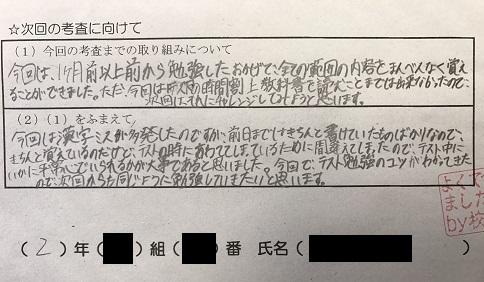 ☆次回の考査に向けて
(1)今回の考査までの取り組みについて
今回は、1ヶ月前以上前から勉強したおかげで、全ての範囲の内容をまんべんなく覚え
ることができました。ただ、今回はテストの時間割上教科書を読むことまでは出来なかったので、
次回はそれにチャレンジしてみようと思います。
(2)(1)をふまえて,
今回は漢字ミスが多発したのですが、前日まではきちんと書けていたものばかりなので、
きちんと覚えているのだけど、テストの時にあわててしまっているために間違えてしまったので、テスト中に
いかに平常心でいられるかが大事であると思いました。今回で、テスト勉強のコツがわかってきた
ので、次回からも同じように勉強していきたいと思います。
よくで
ました
by校
(2)年( )組( )番 氏名( )